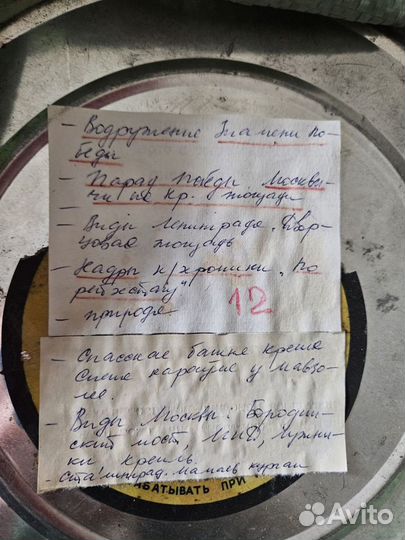 - Водружение Знамени По-
беды
- Парад Победы Москвы-
чи на Кр. площади
- Виды Ленинграда, Двор-
цовая площадь
- Кадры к/хроники „По
рейхстагу"
- природа
12
- Спасская башня Кремля
Смена караула у мавзо-
лея.
- Виды Москвы: Бородин-
ский мост, МИД, Лужни-
ки Кремль.
- Сталинград. Мамаев курган
АБАТЫВАТЬ ПРИ
Avito